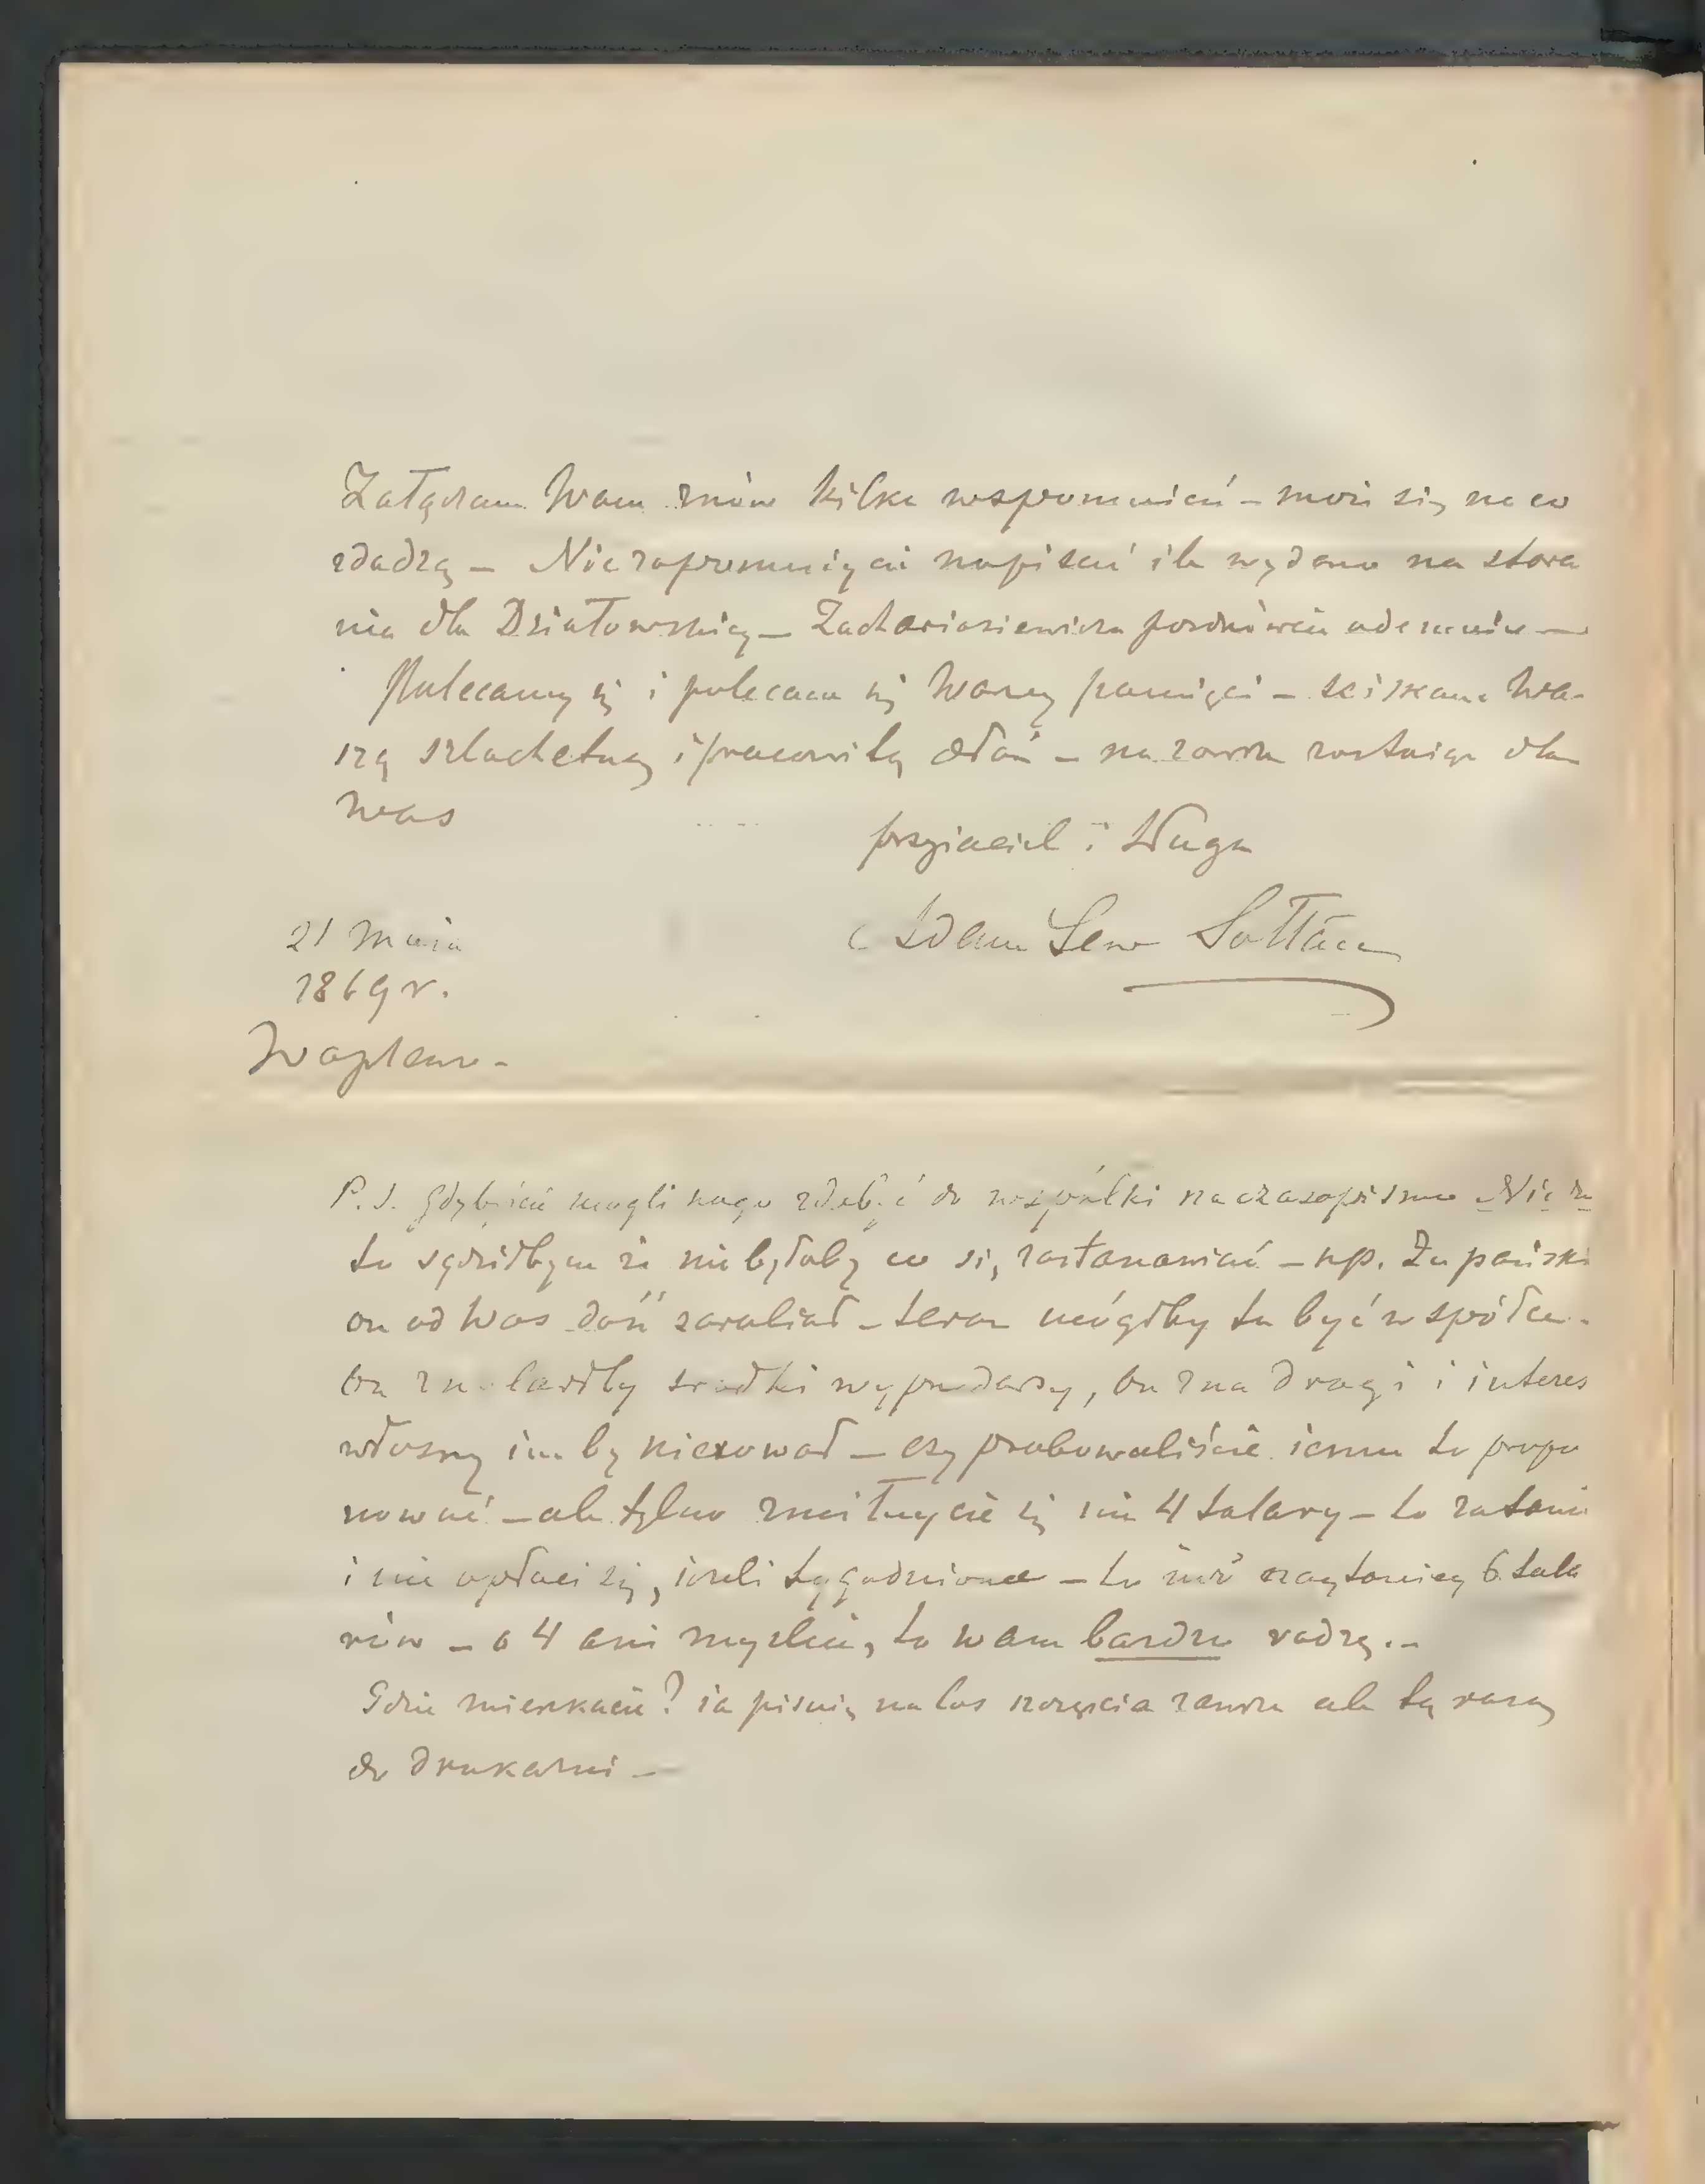 Załączam Wam znów kilka wspomnień – może się na co
zdadzą – Niezapomnijcie napisać ile wydano na stara
nia dla Działowskiej – Zachariasiewicza pozdrówcie odemnie –
Polecamy się i polecam się Waszej pamięci – ściskam Wa-
szą szlachetną i pracowitą dłoń – na zawsze zostaję dla
was
przyjaciel i sługa
Adam Lew Sołtan
21 Maja
1869 r.
Waplewo –
P.S. Gdybyście mogli kogo zdobyć do wspołki na czasopismo
to sądziłbym że nie byłoby co się zastanawiać – np. Żupański
on od Was dość zarabiał – teraz mógłby tu być w spółce –
On znalazłby srodki wyprzedaży, on zna drogi i interes
własny im by kierował – czy probowaliście jemu to propo
nować – ale tylko zmiłujcie się nie 4 talary – to za tanio
i nie opłaci się, jeżeli tygodniowe – to już najtaniej 6 tala
rów – o 4 ani myslcie, to wam bardzo radzę. –
Gdzie mieszkacie? ja piszę na los szczęscia zawsze ale tą razą
do drukarni –